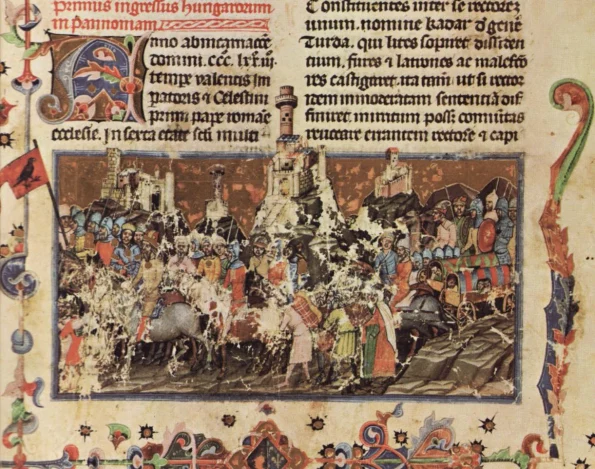 primus ingressus hungarorum
in pannoniam
Anno ab incarnacōe
domini. ccc. lxx iii
tempe valentis Im
patoris & Celestini
primi pape romane
ecclesie. In sexta etate scli multi
Constituerūt inter se rectorē
unum. nomine kadar d gene
Turda. qui lites sopiret dissiden
tium. fures & latrones ac malefco
res castigaret. ita tn̄. ut si rector
idem immoderatam sententiā dif
finiret. in irritum poss; comūitas
reuocare errantem rectorē & capi